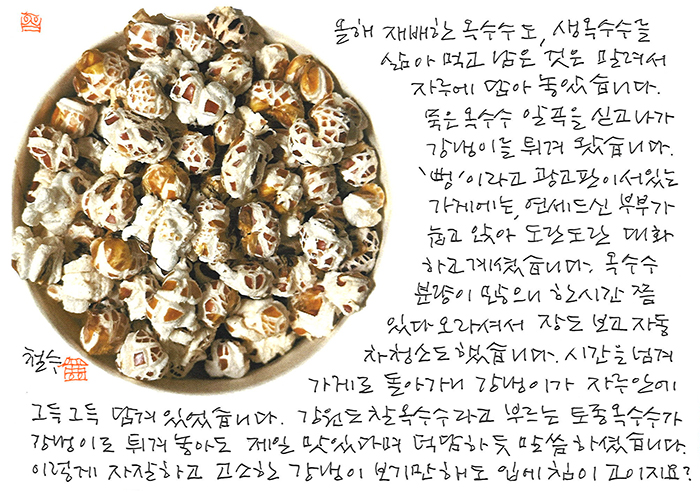 올해 재배한 옥수수도, 생옥수수를
삶아 먹고 남은 것은 말려서
자루에 담아 놓았습니다.
묵은옥수수 알곡을 싣고나가
강냉이를 튀겨 왔습니다.
'뻥'이라고 광고판이서있는
가게에는, 연세드신 부부가
눕고 앉아 도란도란 대화
하고계셨습니다. 옥수수
분량이 많으니 한시간 쯤
있다 오라셔서 장도 보고 자동
차청소도했습니다. 시간을넘겨
가게로 돌아가니 강냉이가 자루안에
그득그득 담겨 있었습니다. 강원도찰옥수수라고 부르는 토종옥수수가
강냉이로 튀겨놓아도 제일 맛있다며 덕담하듯 말씀하셨습니다.
이렇게 자잘하고 고소한 강냉이 보기만해도 입에침이 고이지요?
철수